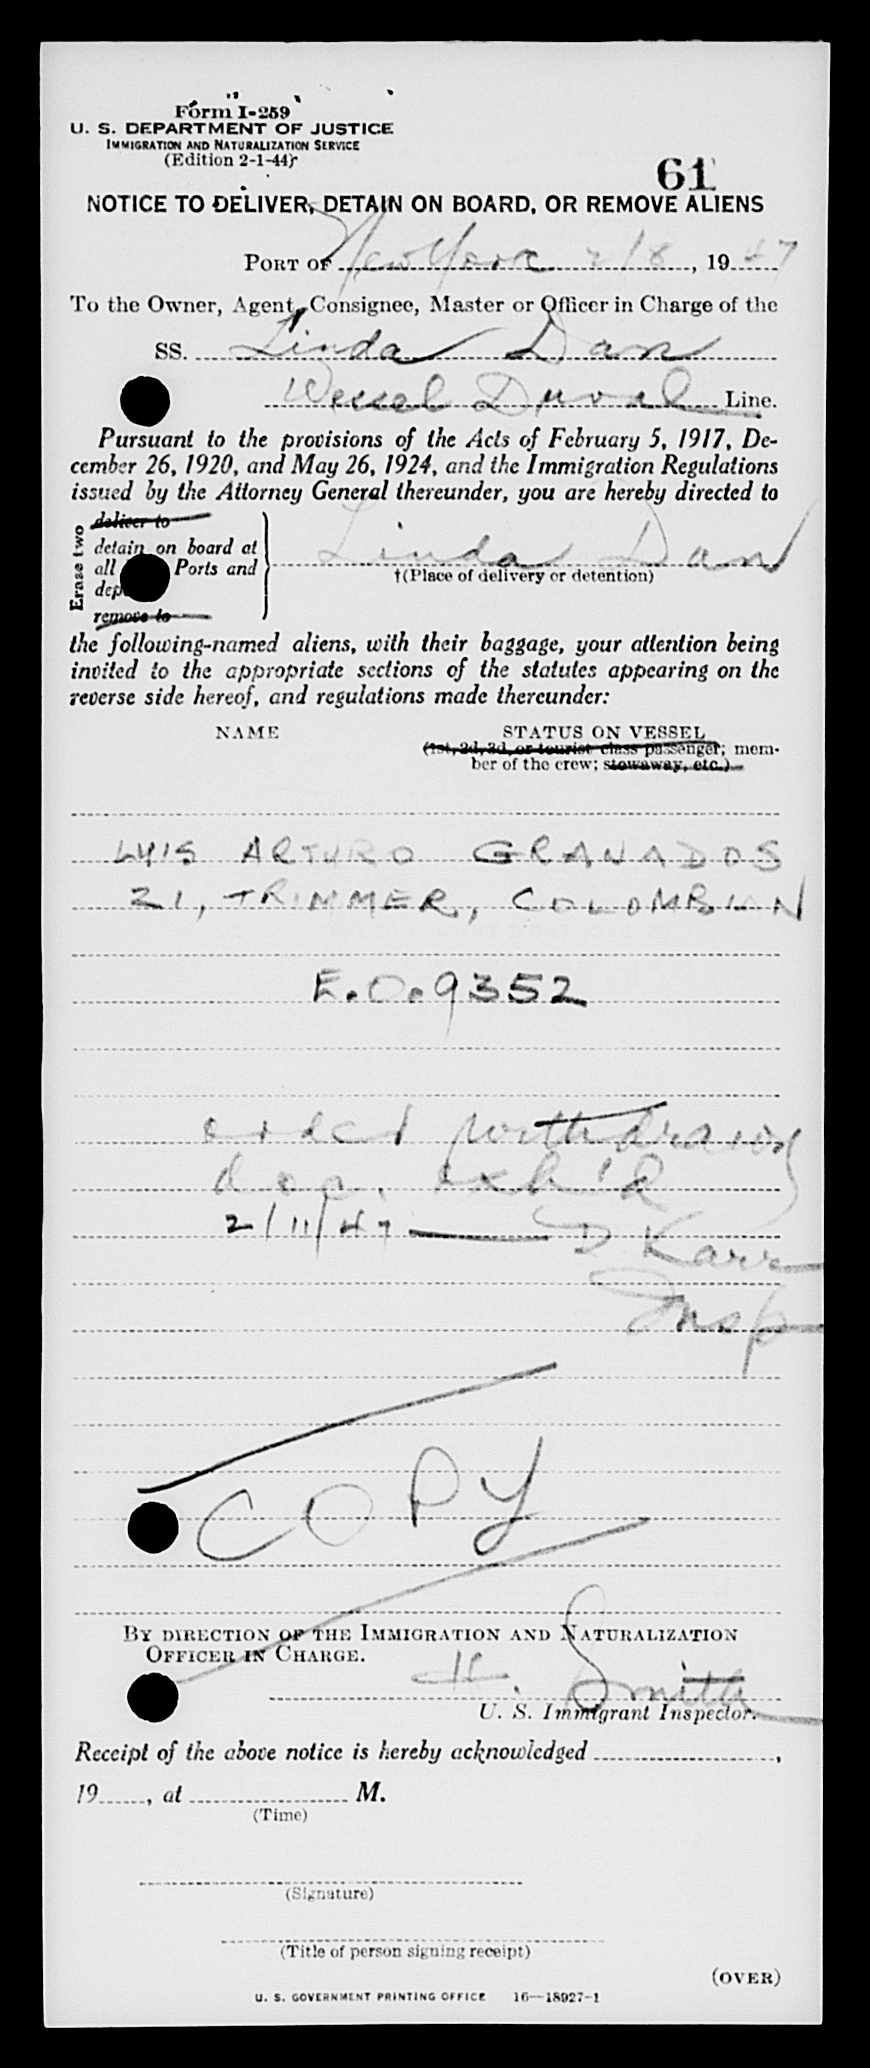 Form I-259
U. S. DEPARTMENT OF JUSTICE
IMMIGRATION AND NATURALIZATION SERVICE
(Edition 2-1-44)
61
NOTICE TO DELIVER, DETAIN ON BOARD, OR REMOVE ALIENS
PORT OF New York 2/8, 1947
To the Owner, Agent, Consignee, Master or Officer in Charge of the
SS. Linda Dan
Wessel Duval Line.
Pursuant to the provisions of the Acts of February 5, 1917, De-
cember 26, 1920, and May 26, 1924, and the Immigration Regulations
issued by the Attorney General thereunder, you are hereby directed to
Erase two
deliver to
detain on board at
all Ports and
dep
remove to
Linda Dan
†(Place of delivery or detention)
the following-named aliens, with their baggage, your attention being
invited to the appropriate sections of the statutes appearing on the
reverse side hereof, and regulations made thereunder:
NAME STATUS ON VESSEL
(1st, 2d, 3d, or tourist class passenger; mem-
ber of the crew; stowaway, etc.)
LUIS ARTURO GRANADOS
21, TRIMMER, COLOMBIAN
E.O. 9352
order withdrawn
doc. exh'd
2/11/47 — D Karr
Insp
COPY
BY DIRECTION OF THE IMMIGRATION AND NATURALIZATION
OFFICER IN CHARGE.
H. Smith
U. S. Immigrant Inspector.
Receipt of the above notice is hereby acknowledged ,
19 , at M.
(Time)
(Signature)
(Title of person signing receipt)
(OVER)
U. S. GOVERNMENT PRINTING OFFICE 16—18927-1